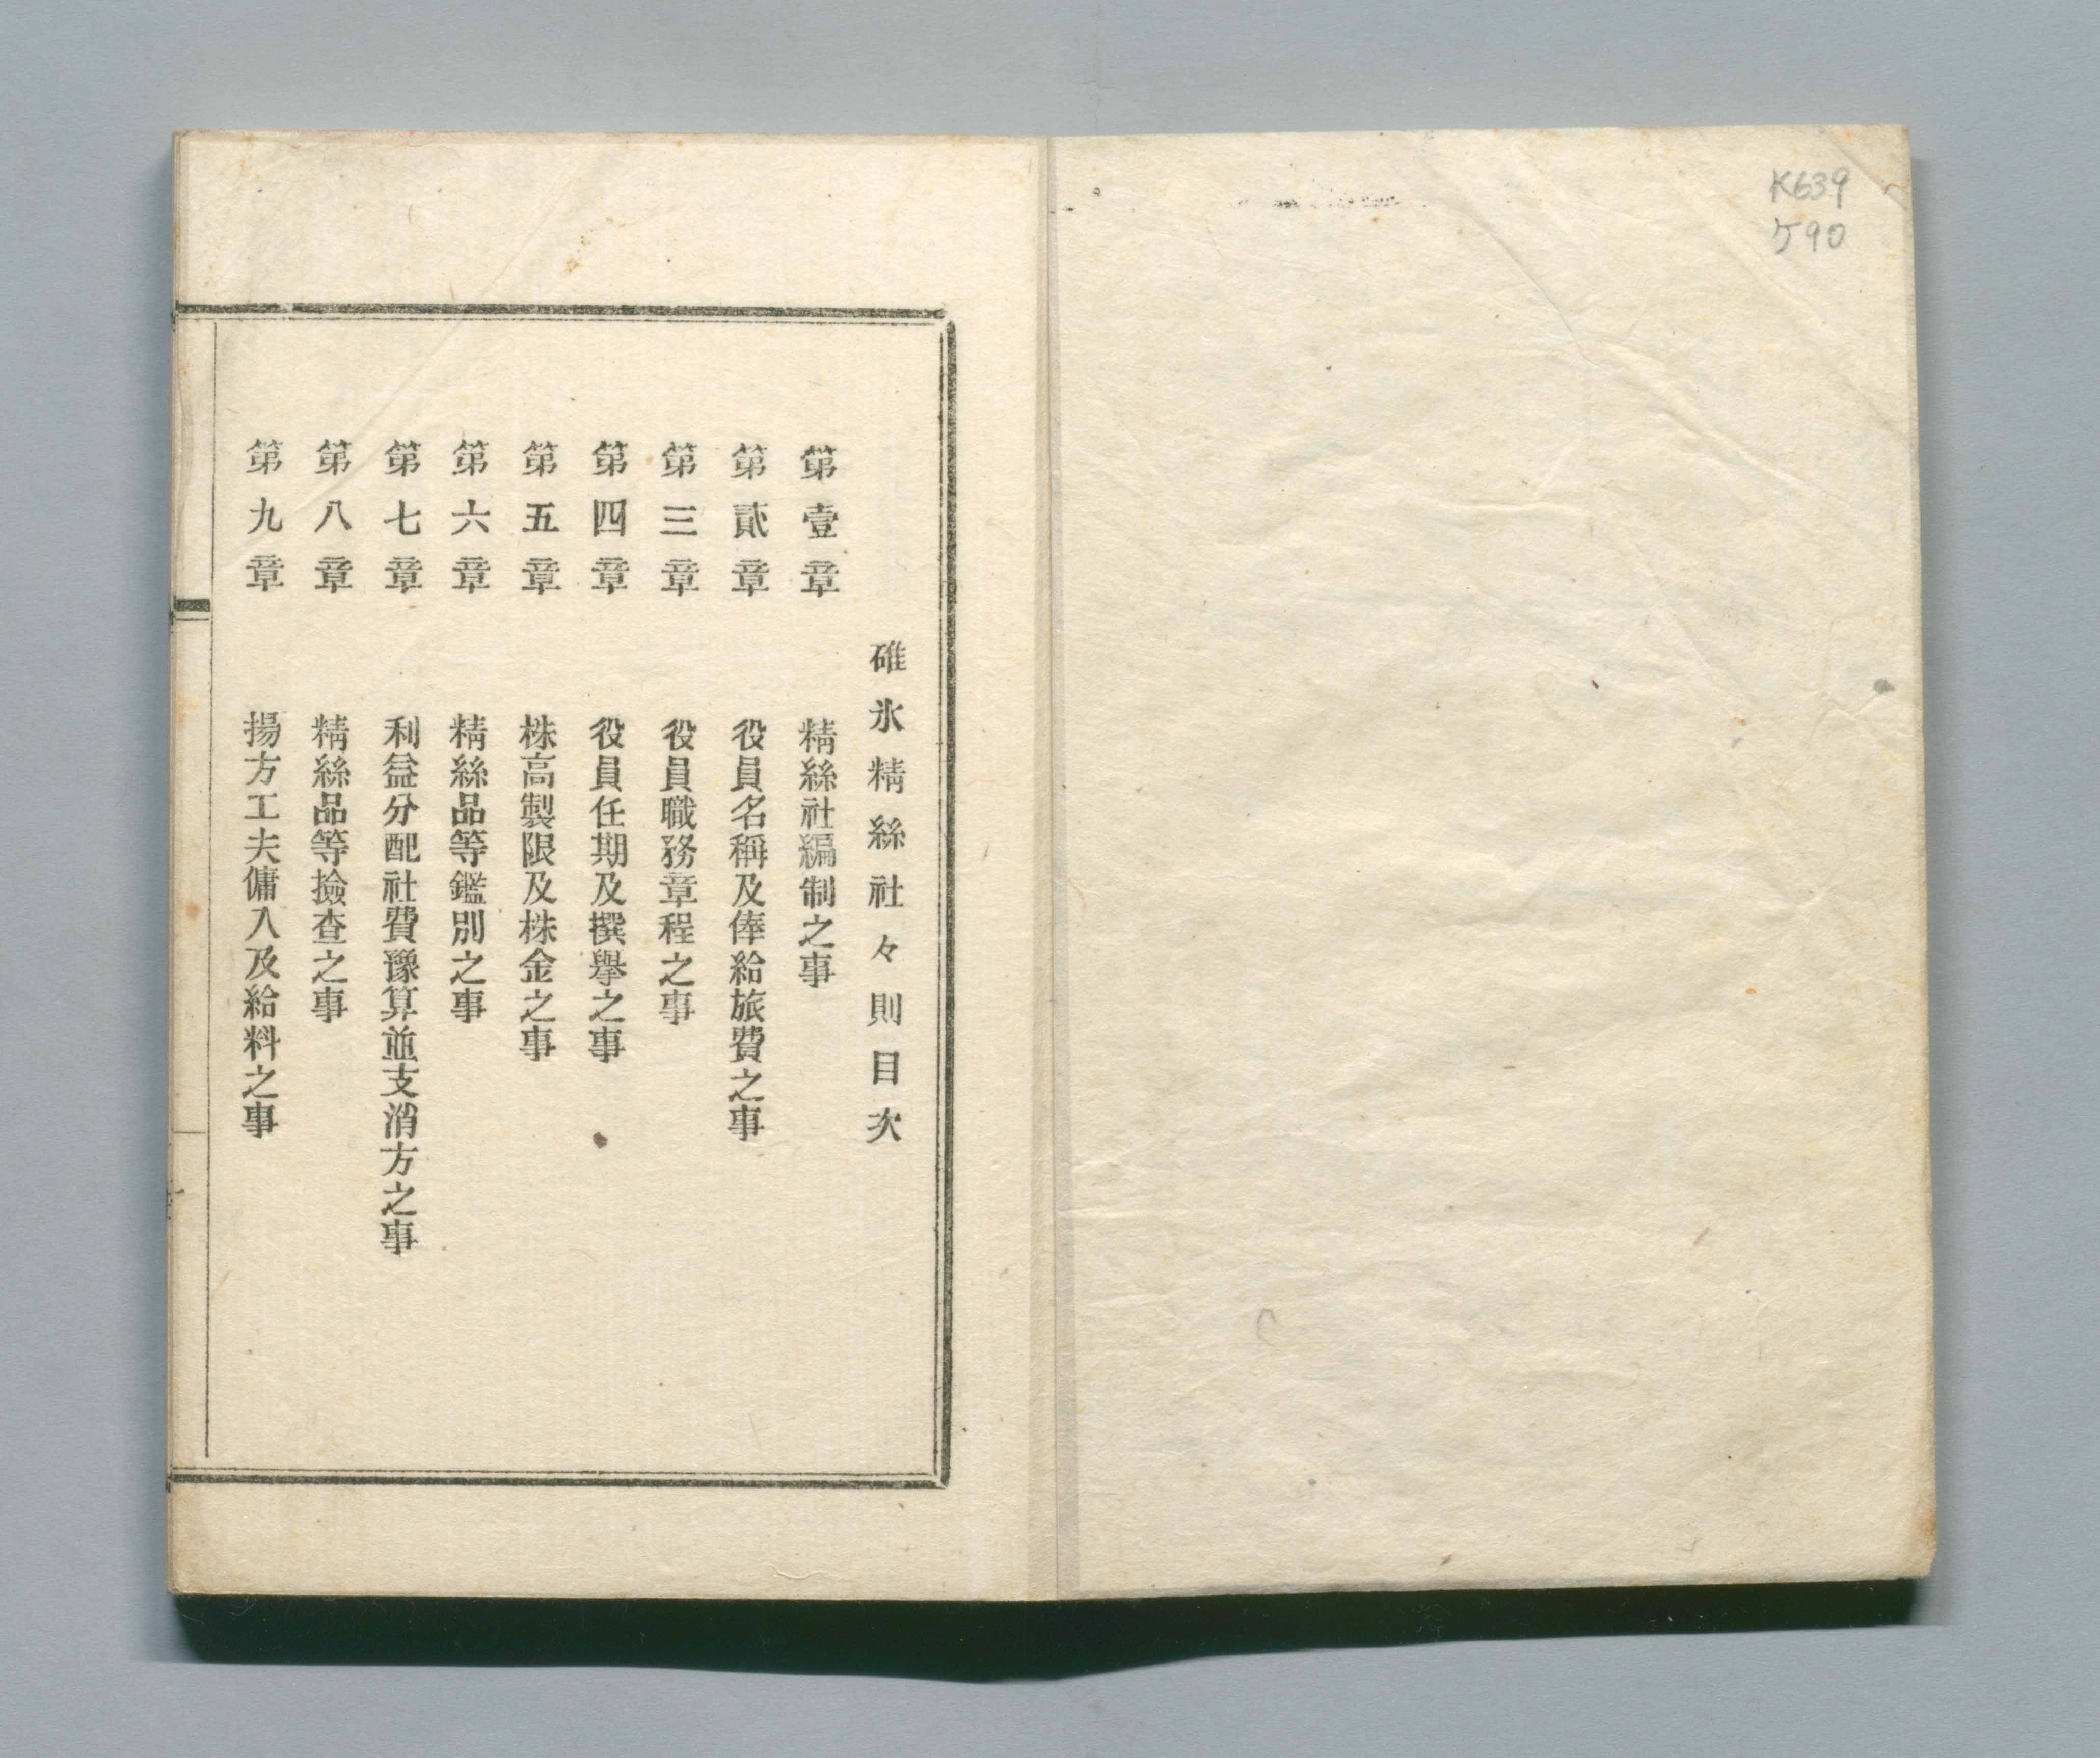 K639
ケ90
碓氷精絲社々則目次
第壹章 精絲社編制之事
第貳章 役員名稱及俸給旅費之事
第三章 役員職務章程之事
第四章 役員任期及撰擧之事
第五章 株高製限及株金之事
第六章 精絲品等鑑別之事
第七章 利益分配社費豫算並支消方之事
第八章 精絲品等撿査之事
第九章 揚方工夫傭入及給料之事